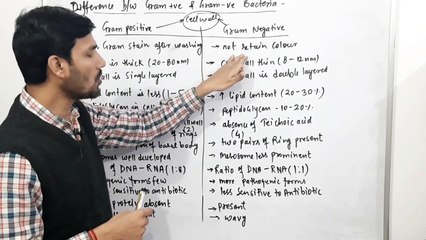 Difference b/w Gram +ve & Gram -ve Bacteria-
Cell wall
Gram positive
Gram Negative
Gram stain after washing
→ not retain colour
is thick (20-80nm)
thin (8-12nm)
is single layered
is double layered
content is less (1-5
↑ Lipid content (20-30%)
→ Peptidoglycan - 10-20%
→ absence of Teichoic acid
(4)
(2)
of basal body
→ two pairs of Ring present
well developed
→ Mesosome less prominent
of DNA-RNA (1:8)
→ Ratio of DNA-RNA (1:1)
few
→ more pathogenic forms
sensitive to antibiotic
→ less sensitive to Antibiotic
absent
→ present
→ wavy